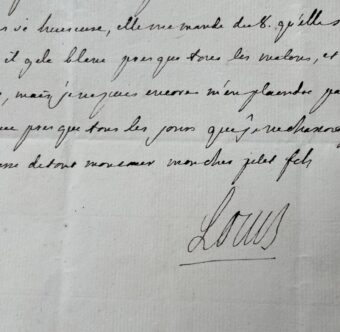 heureuse, elle me mande du 8. qu'elle
il gele blanc presque tous les matins, et
, mais je ne puis encore m'en plaindre
presque tous les jours que je ne chasse
de tout mon cœur mon cher petit fils
Louis